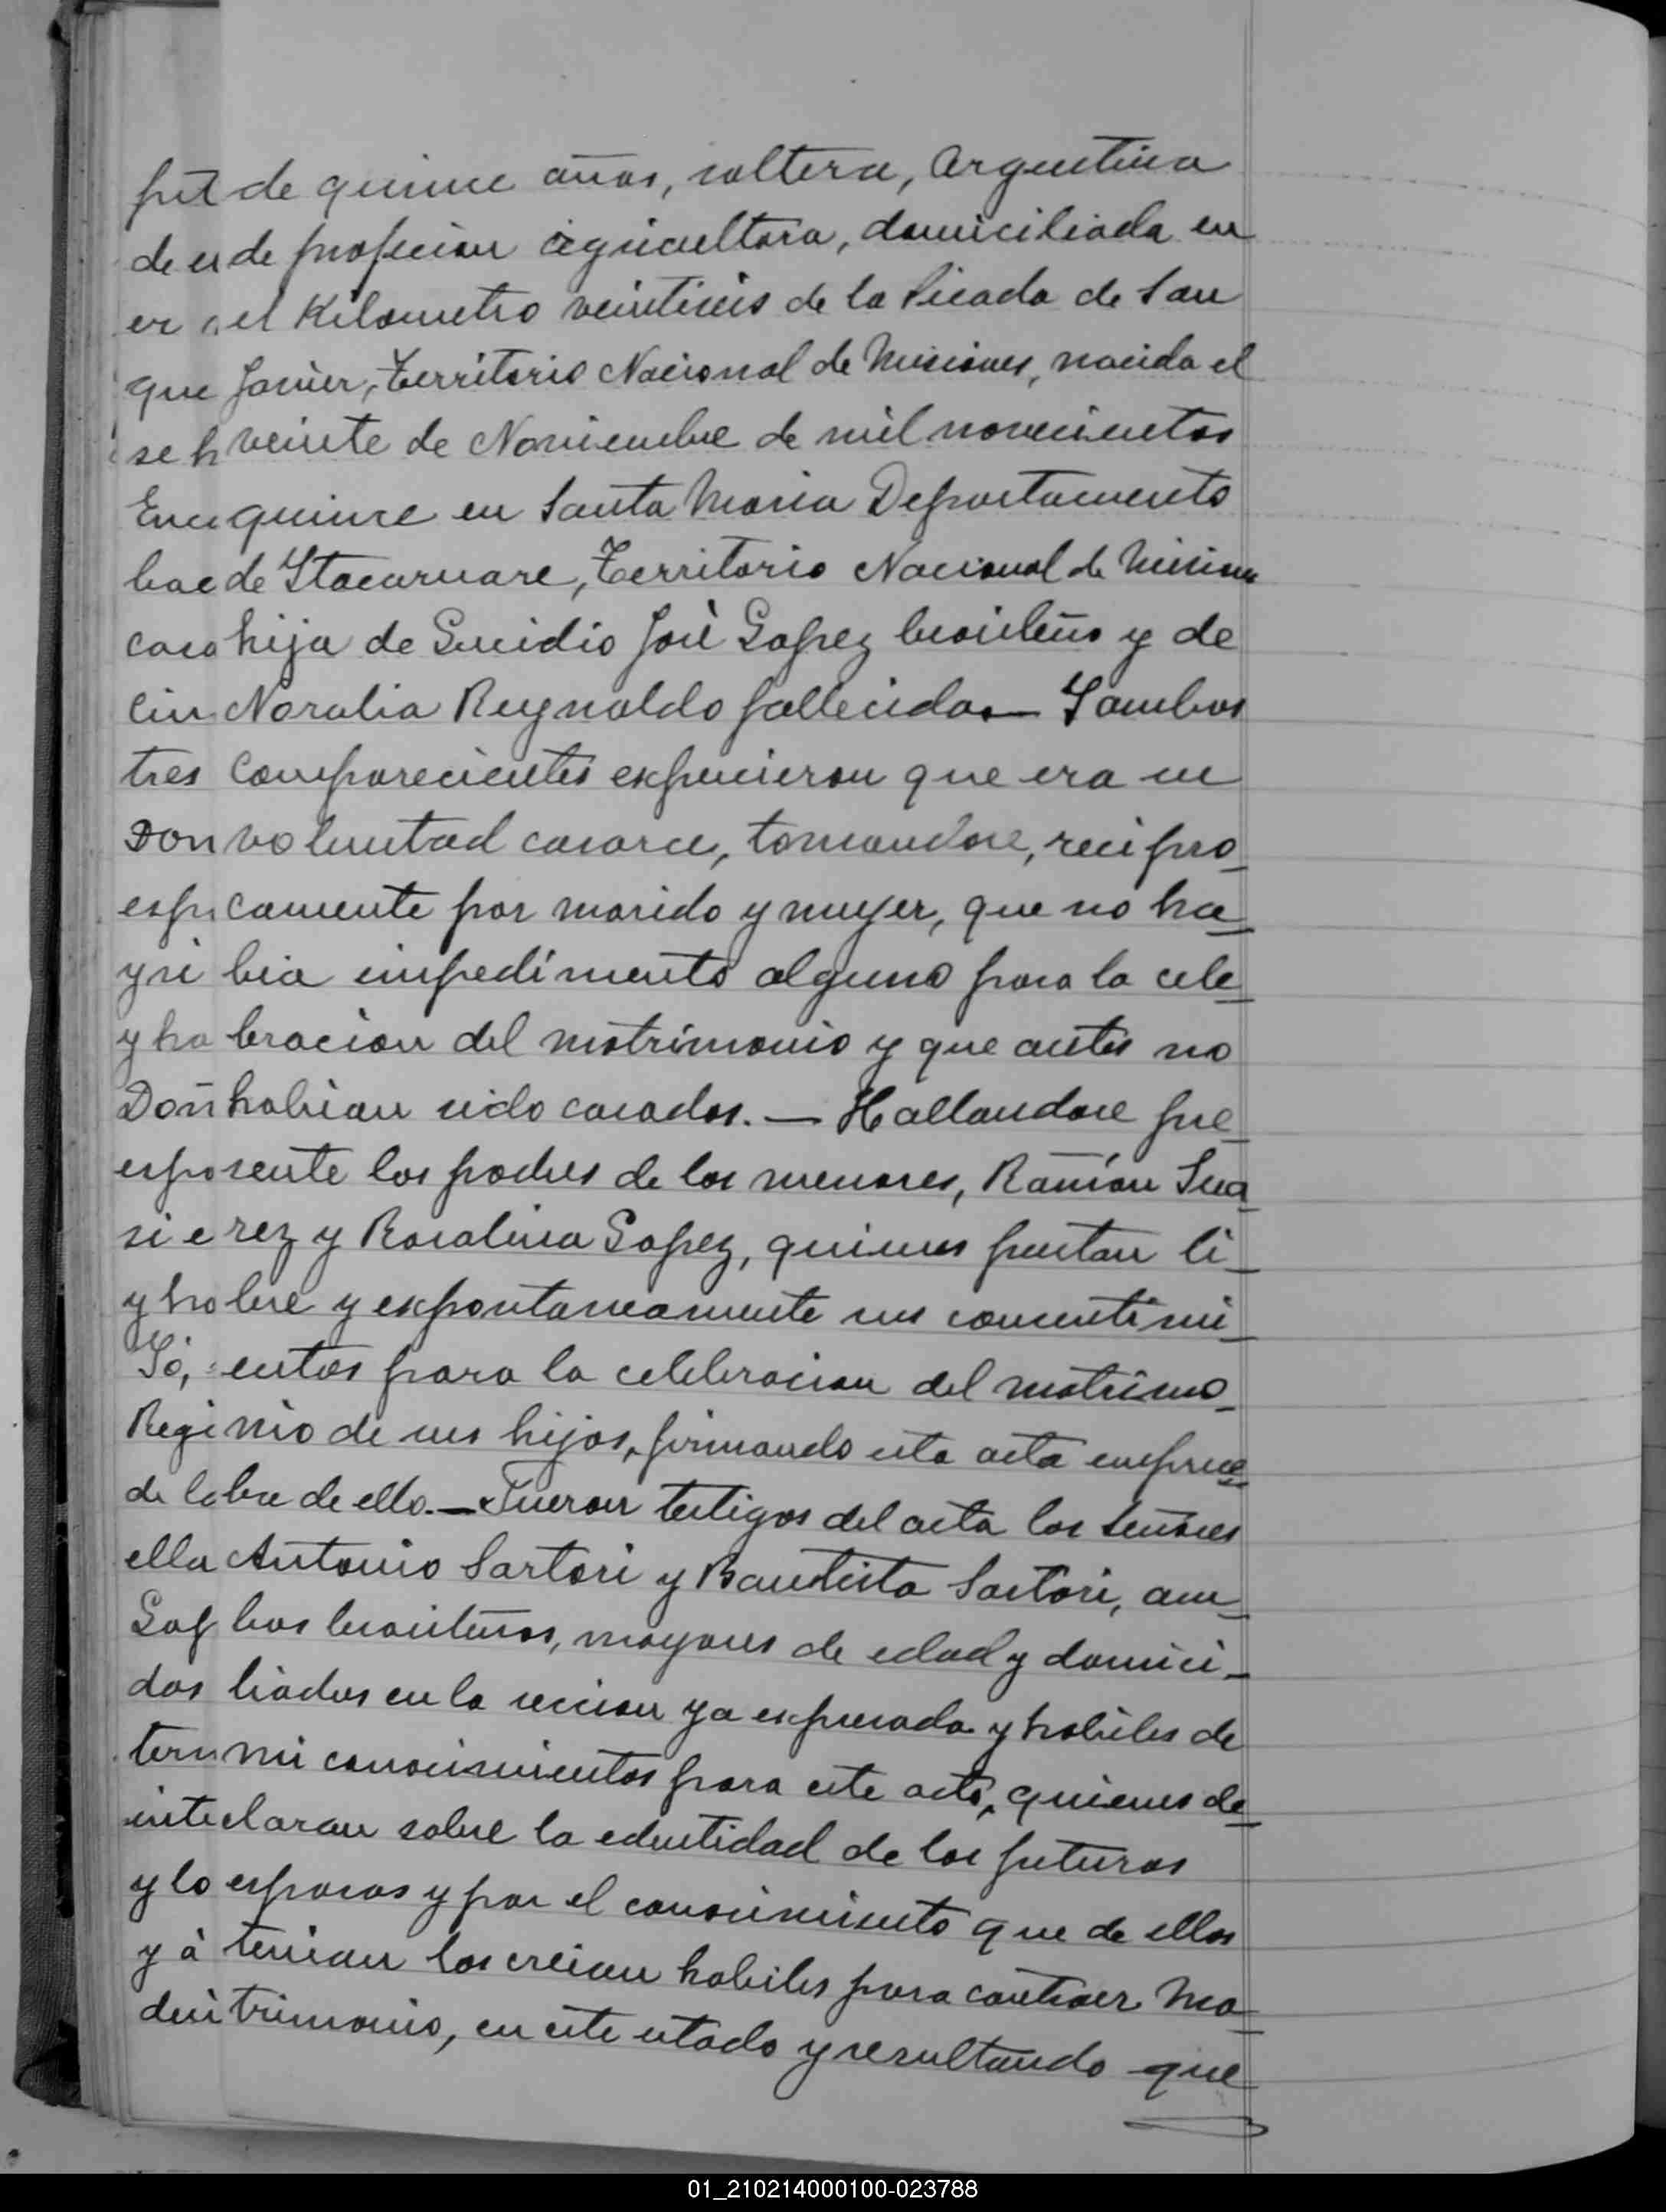 fut de quince años, soltera, Argentina
de es de profecion agricultora, domiciliada en
er el Kilometro veintiseis de la Picada de San
que Javier, Territorio Nacional de Misiones, nacida el
se h veinte de Noviembre de mil novecientos
Enc quince en Santa Maria Departamento
bac de Ytacaruare, Territorio Nacional de Misiones
casa hija de Lucidio José Lopez brasileño y de
cin Noralia Reynaldo fallecida.— Y ambos
tres Comparecientes expusieron que era su
Don voluntad casarce, tomandose, recipro_
esp camente por marido y muger, que no ha_
y si bia impedimento alguno para la cele_
y ha bracion del matrimonio y que antes no
Doñ habian sido casados.— Hallandose pre_
espo sente los padres de los menores, Ramón Sua_
si e rez y Rosalina Lopez, quienes prestan li_
y ha bre y expontaneamente sus consentimi_
Yó, entos para la celebracion del matrimo_
Regi nio de sus hijos, firmando esta acta en prue_
de l ba de ello.— Fueron testigos del acta los Señores
ella Antonio Sartori y Bautista Sartori, am_
Lop bos brasileños, mayores de edad y domici_
dos liados en la seccion ya expresada y habiles de
tern mi conocimientos para este acto, quienes de_
inte claran sobre la edentidad de los futuros
y lo esposos y por el conocimiento que de ellos
y à tenian los creian habiles para contraer Ma_
dui trimonio, en este estado y resultando que
01_210214000100-023788